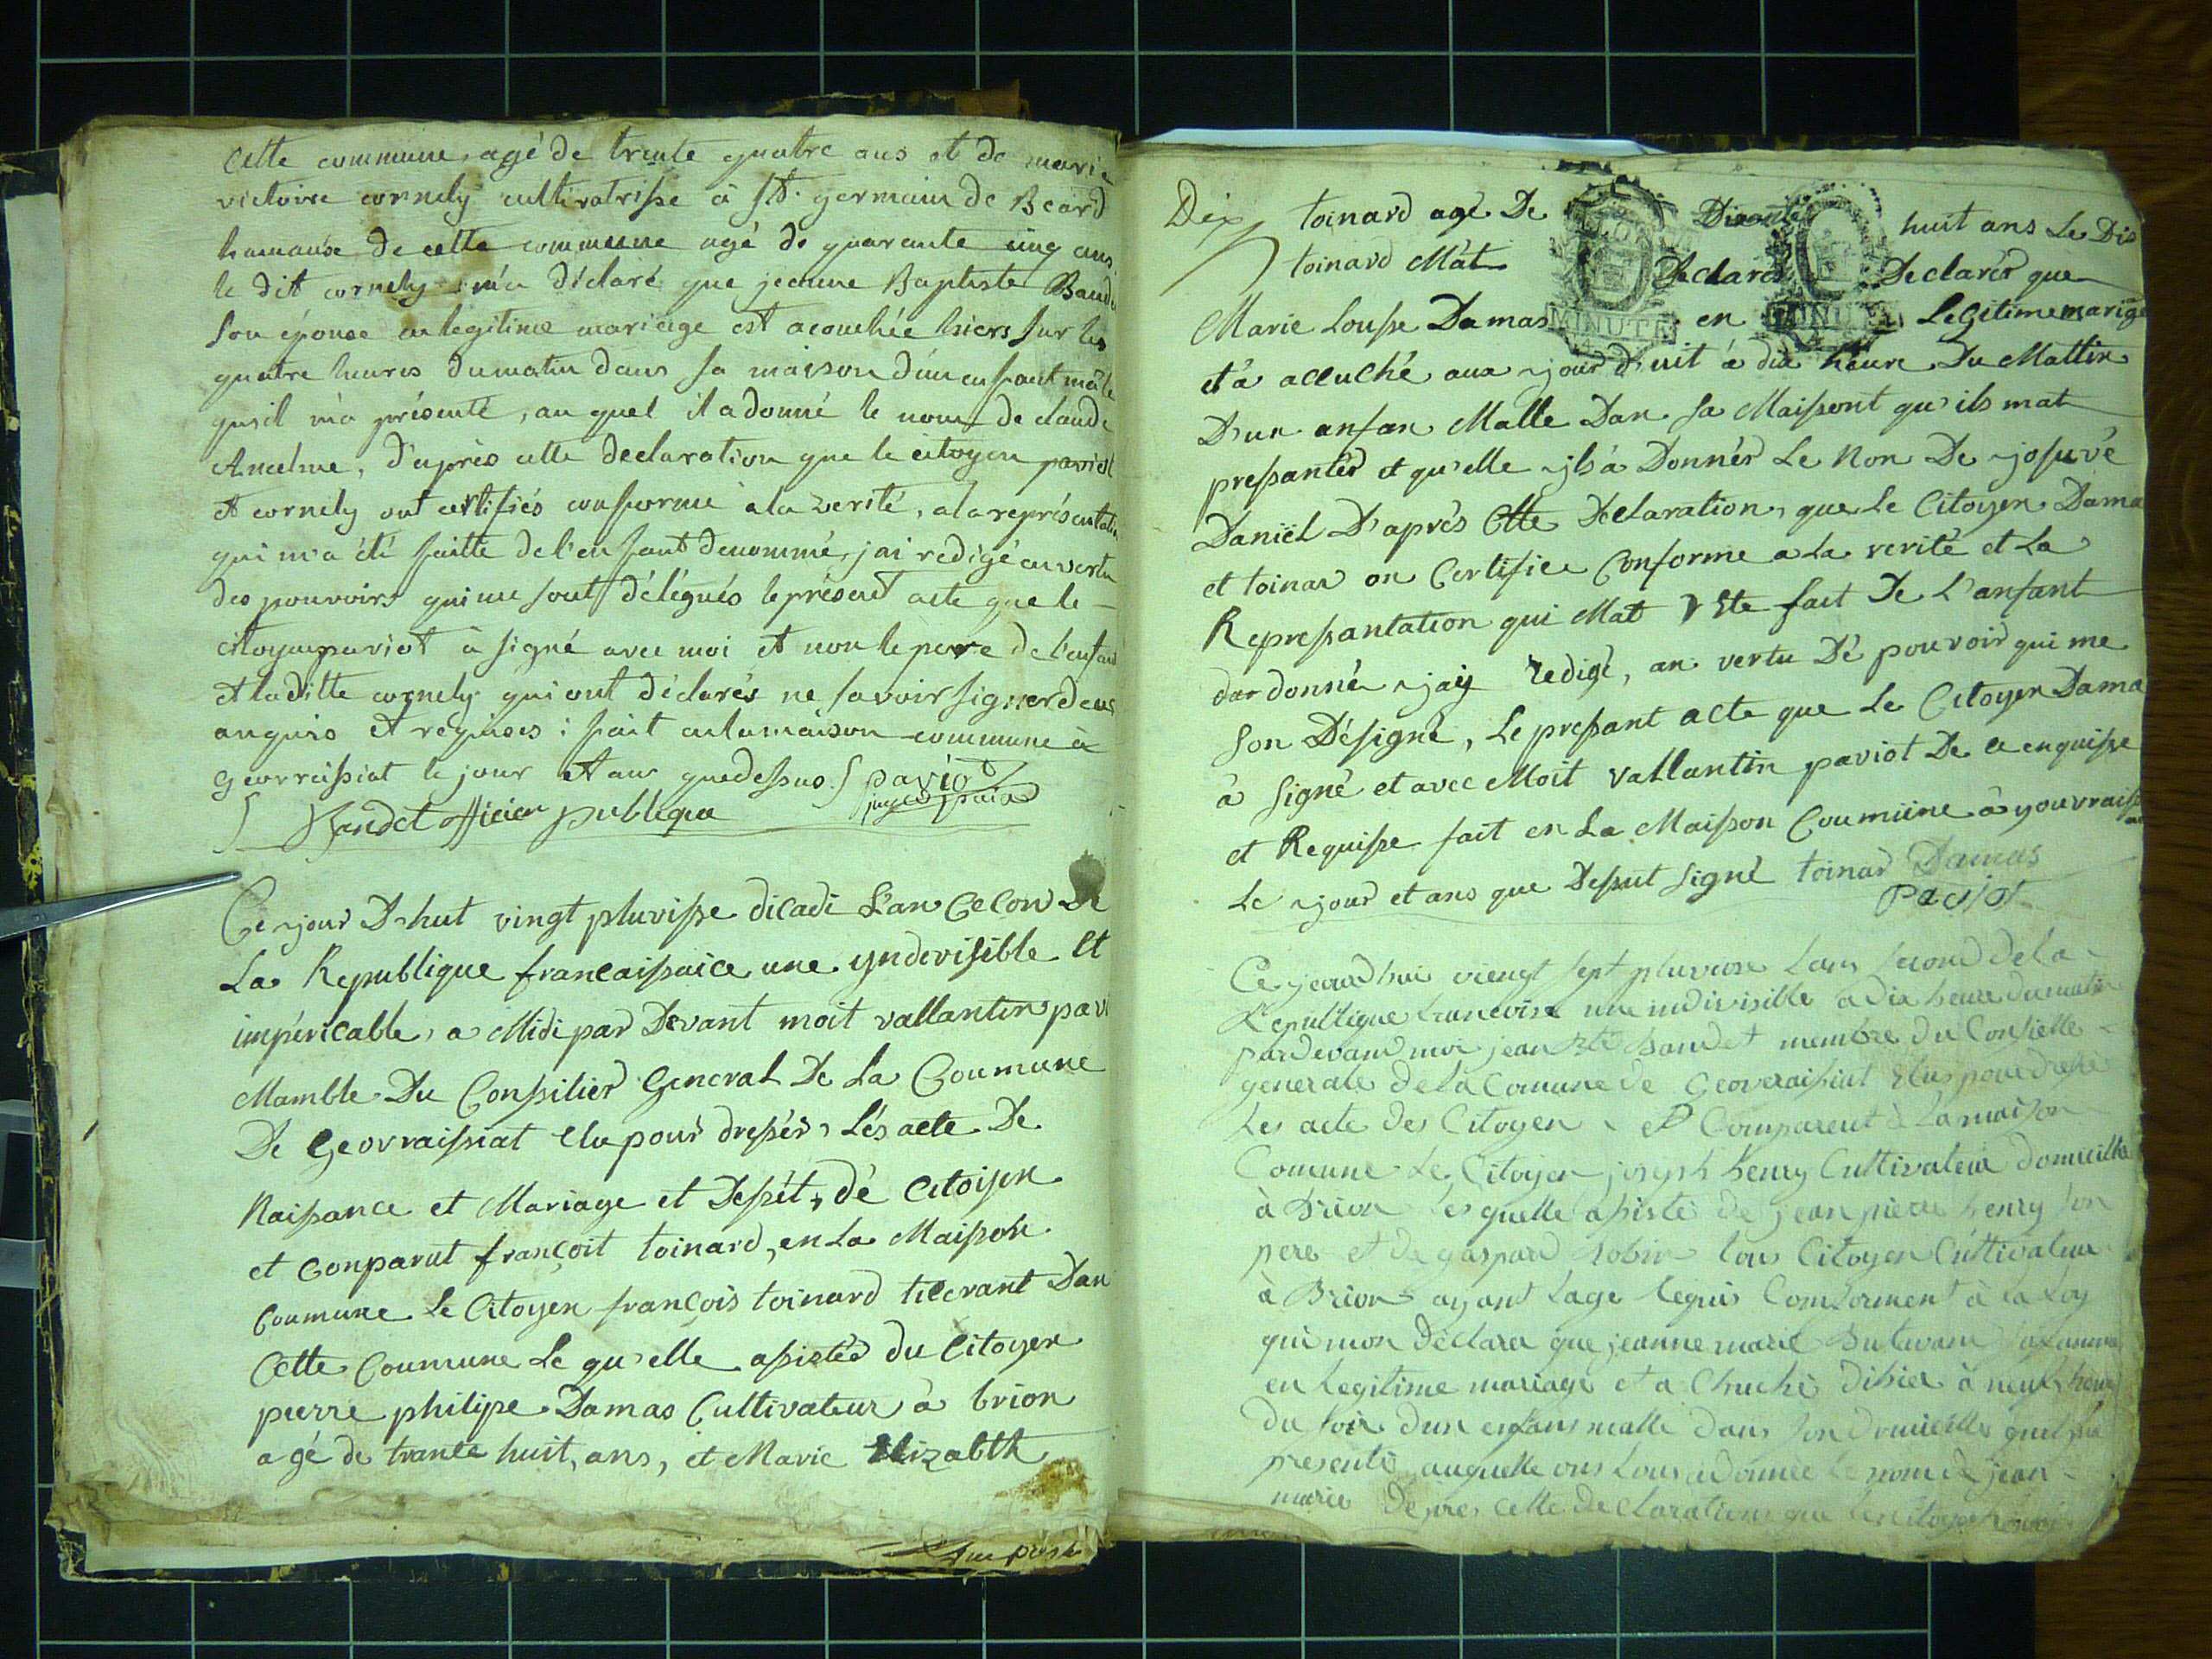 Cette commune, agé de trente quatre ans et de marie
victoire cornely cultivatrisse à St. germain de Beard
hamause de cette commune agé de quarante cinq ans
le dit cornely m'a déclaré que jeanne Baptiste Baudé
son épouse en legitime mariage est acouchée hiers sur les
quatre heures du matin dans sa maison d'un enfant mâle
qu'il m'a présenté, au quel il a donné le nom de claude
Anselme, d'après cette declaration que le citoyen paviot
et cornely ont certifiés conforme à la verité, a la représentation
qui m'a été faitte de l'enfant denommé, j'ai redigé en vertu
des pouvoirs qui me sont délégués le présent acte que le
citoyen paviot à signé avec moi et non le pere de l'enfant
et la ditte cornely qui ont déclarés ne savoir signer de ce
anquis et requises : fait en la maison commune à
geovraissiat le jour et an que dessus. paviot
Baudet officier publique
Ce jour D'hut vingt pluvisse dicadi L'an Cecon De
La Republique francaissaice une yndevisible Et
impéricable, a Midi par Devant moit vallantin pavi
Mamble Du Conssilier General De La Coumune
De Geovraissiat Elu pour dressér, Lés acte De
Naissance et Mariage et Desśét, dé Citoijen
et Conparut françoit toinard, en La Maisson
Coumune Le Citoyen françois toinard ticerant Dan
Cette Coumune Le qu'elle assistée du Citoyen
pierre philipe Damas Cultivateur à brion
agé de trante huit, ans, et Marie Elizabth
Dix toinard agé De huit ans Le Dis
toinard Mat Declaré Declarér que
Marie Lousse Damas en Legitime marige
et à accuché aux jour d'uit à dix heure Du Mattin
D'un anfan Malle Dan Sa Maissont qu'ils mat
pressantér et qu'elle jls à Donnér Le Non De josuvé
Daniël D'aprés Ctte Déclaration, que Le Citoyen Dama
et toinar on Certifiee Conforme a La verité et La
Repressantation qui Mat Ete fait De L'anfant
dardonné jaij redigé, an vertu Dé pouvoir qui me
Son Désigné, Le pressant acte que Le Citoyen Dama
à Signé et avec Moit vallantin paviot De ce enquisse
et Requisse fait en La Maisson Coumiune à youvraiss
Le jour et ans que Dessut Signé toinar Damas
Paviot
Ce jourdhui viengt sept pluviose Lans second de La
Republique francoise une indivisible a dix heure du matin
pardevand moi jean Bte baudet membre du Consielle
generale de La Comune de Geovraissiat Elus pour dressé
Les acte des Citoyen et Comparent à La maison
Comune Le Citoyen joseph henry Cultivateur domicillie
à Brion Lesquelle assisté de jean pierre henry son
pere et de gaspard robin tous Citoyen Cultivateur
à Brion ayant Lage requis Conforment à La Loy
qui mon déclara que jeanne marie sa famme
en Legitime mariage et a Chuché dihier à neuf heure
du soir dun enfans malle dans son domicille quil ma
presenté auquelle ons Lous a donnée Le nom de jean
marie Depres Cette declaration que Les Citoyen henry